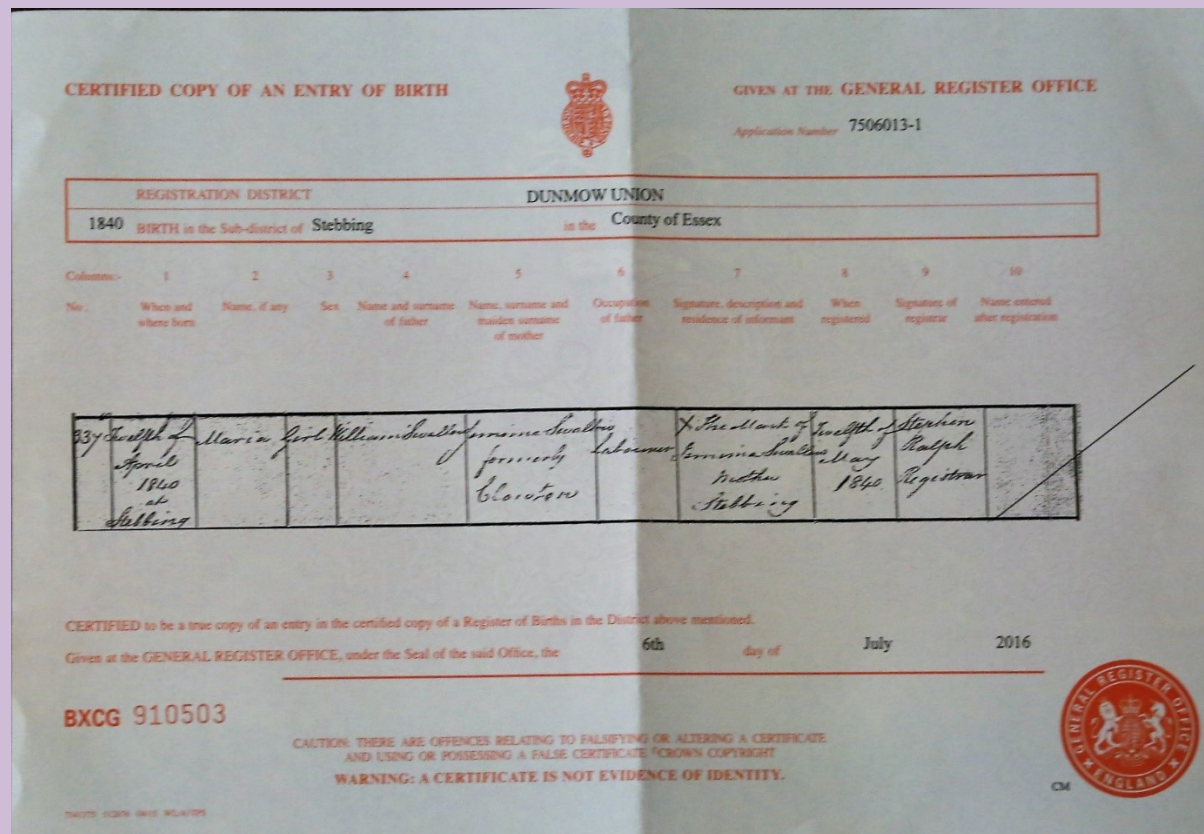 CERTIFIED COPY OF AN ENTRY OF BIRTH
GIVEN AT THE GENERAL REGISTER OFFICE
Application Number 7506013-1
REGISTRATION DISTRICT DUNMOW UNION
1840 BIRTH in the Sub-district of Stebbing in the County of Essex
Columns:- 1 2 3 4 5 6 7 8 9 10
No. When and where born Name, if any Sex Name and surname of father Name, surname and maiden surname of mother Occupation of father Signature, description and residence of informant When registered Signature of registrar Name entered after registration
337 Twelfth of Maria Girl William Swallow Jemima Swallow Labourer X The Mark of Twelfth of Stephen
April formerly Jemima Swallow May Ralph
1840 mother 1840 Registrar
at Stebbing
Stebbing
CERTIFIED to be a true copy of an entry in the certified copy of a Register of Births in the District above mentioned.
Given at the GENERAL REGISTER OFFICE, under the Seal of the said Office, the 6th day of July 2016
BXCG 910503
CAUTION: THERE ARE OFFENCES RELATING TO FALSIFYING OR ALTERING A CERTIFICATE
AND USING OR POSSESSING A FALSE CERTIFICATE ©CROWN COPYRIGHT
WARNING: A CERTIFICATE IS NOT EVIDENCE OF IDENTITY.
GENERAL REGISTER OFFICE
ENGLAND
CM